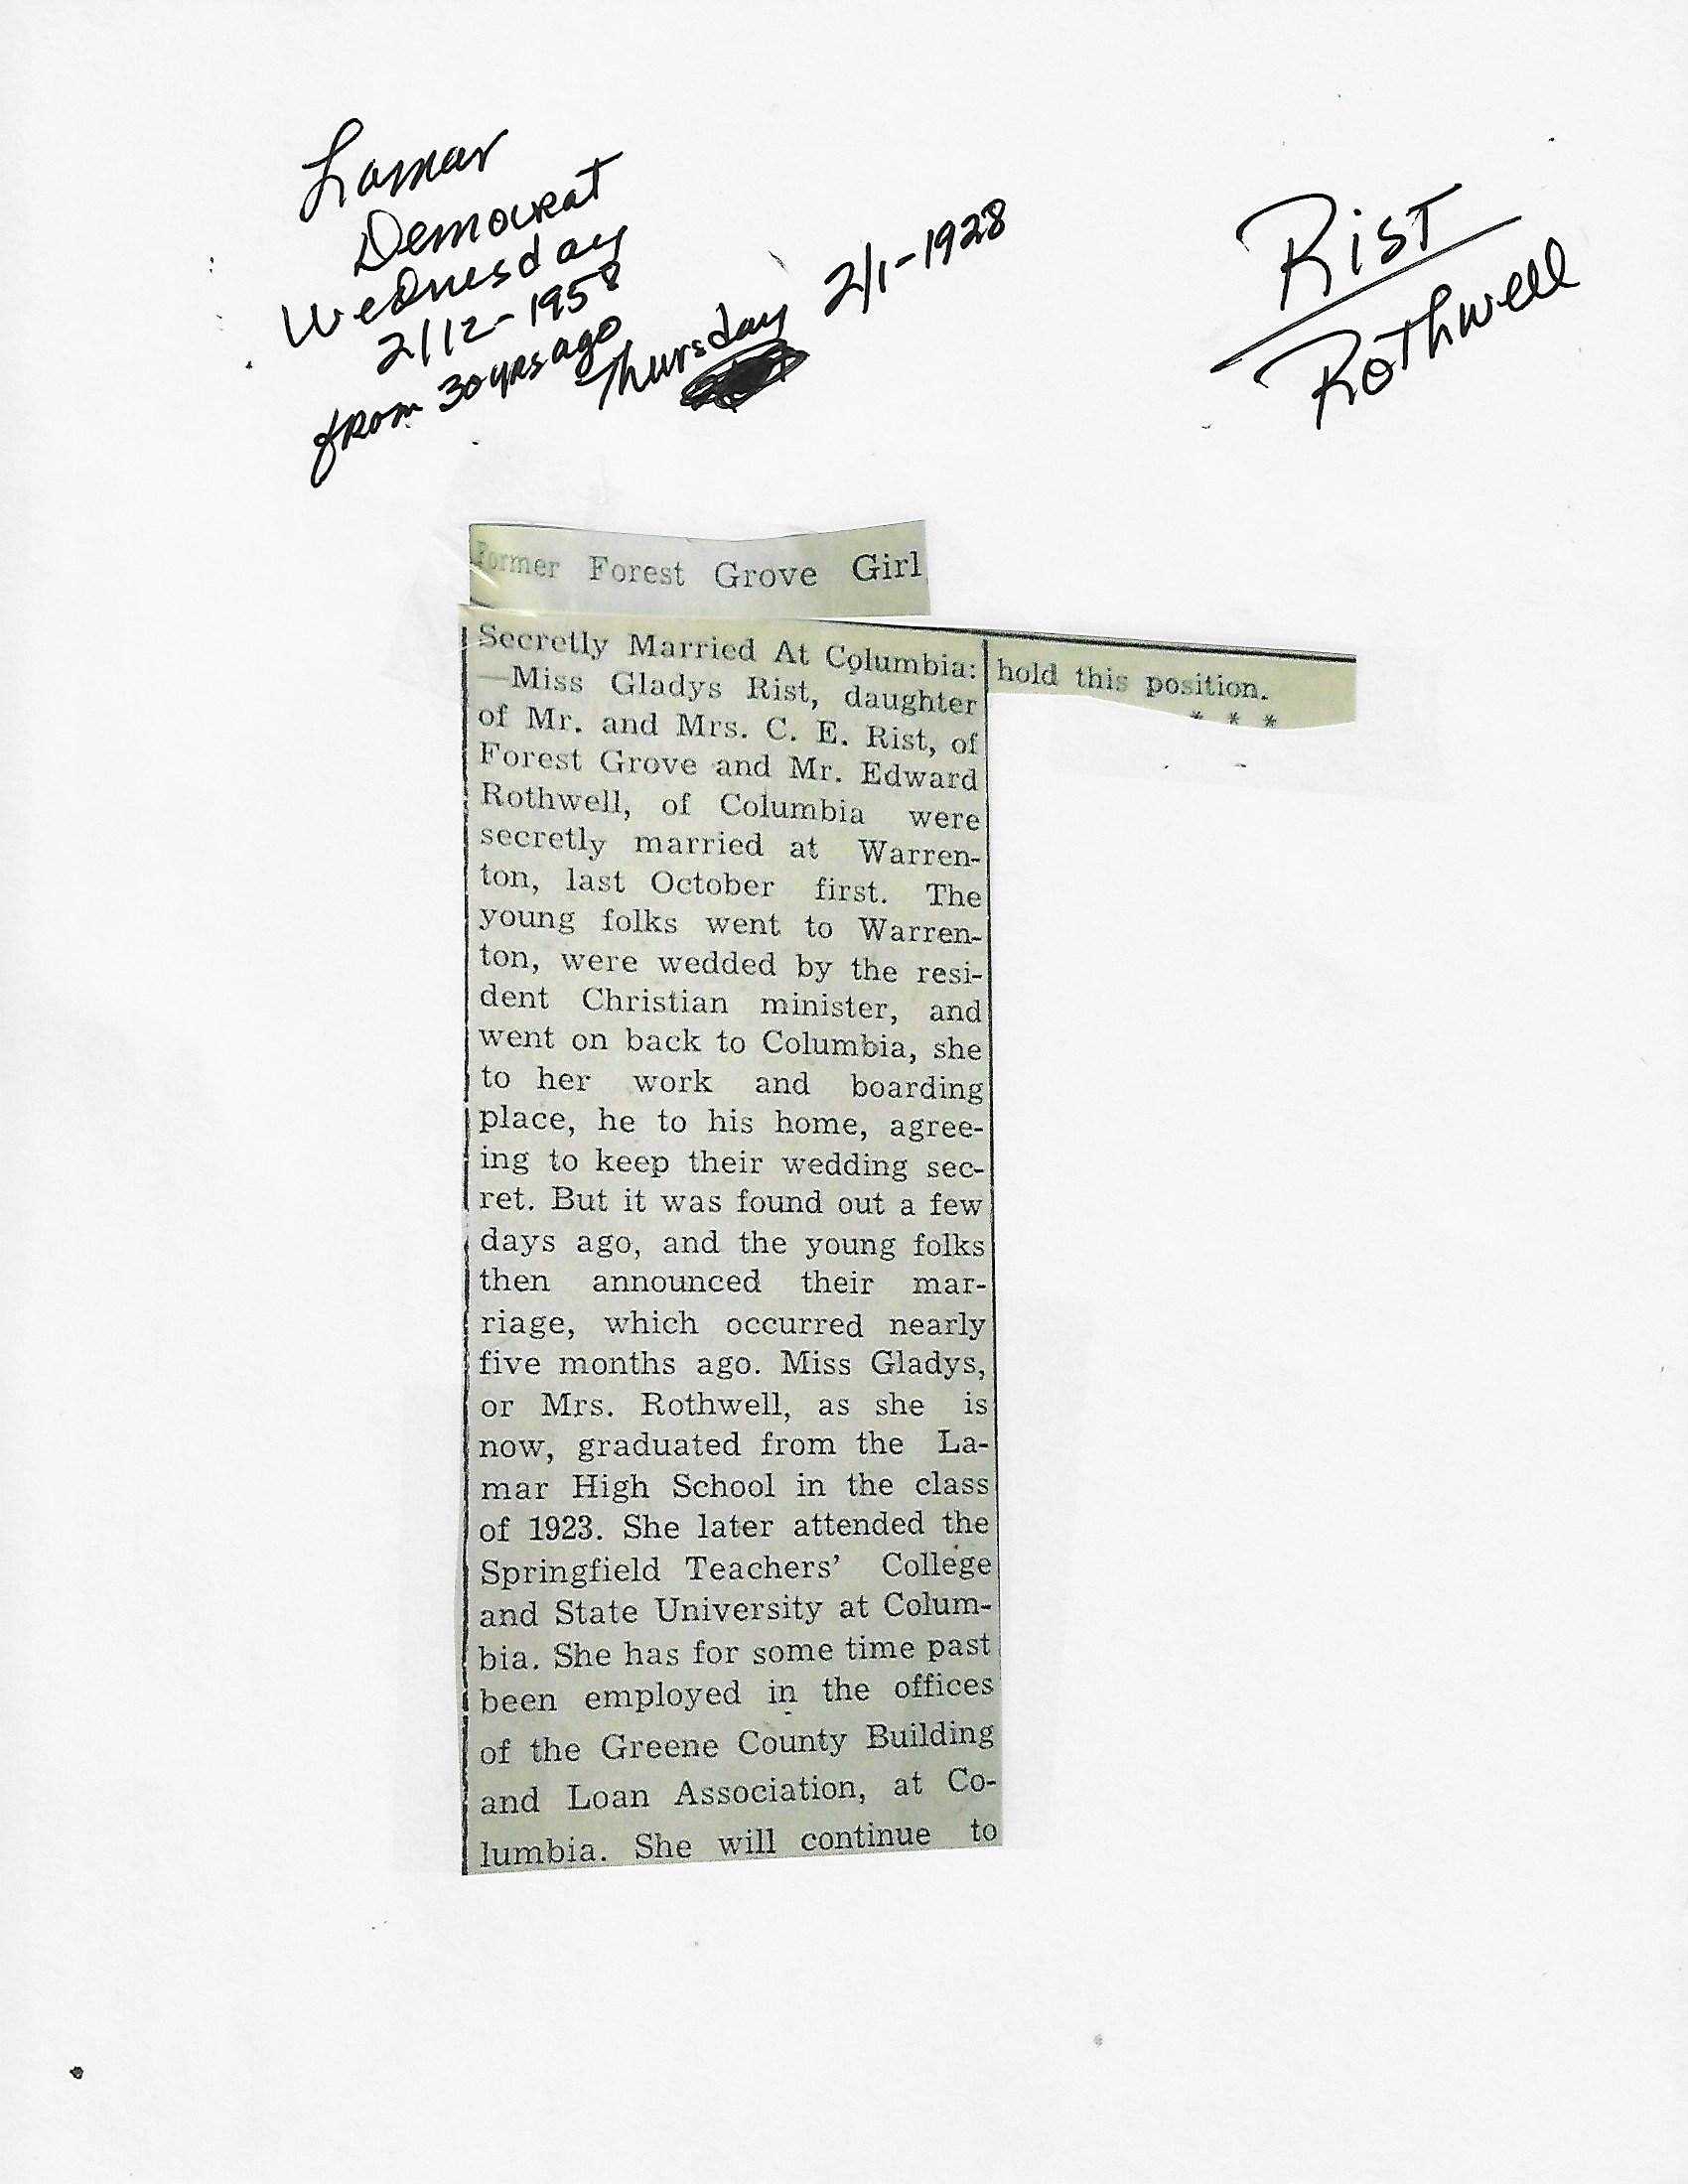 Lamar
Democrat
Wednesday
2/12-1958
from 30 yrs ago
Thursday 2/1-1928
Rist
Rothwell
Former Forest Grove Girl
Secretly Married At Columbia:
—Miss Gladys Rist, daughter
of Mr. and Mrs. C. E. Rist, of
Forest Grove and Mr. Edward
Rothwell, of Columbia were
secretly married at Warren-
ton, last October first. The
young folks went to Warren-
ton, were wedded by the resi-
dent Christian minister, and
went on back to Columbia, she
to her work and boarding
place, he to his home, agree-
ing to keep their wedding sec-
ret. But it was found out a few
days ago, and the young folks
then announced their mar-
riage, which occurred nearly
five months ago. Miss Gladys,
or Mrs. Rothwell, as she is
now, graduated from the La-
mar High School in the class
of 1923. She later attended the
Springfield Teachers' College
and State University at Colum-
bia. She has for some time past
been employed in the offices
of the Greene County Building
and Loan Association, at Co-
lumbia. She will continue to
hold this position.
* * *